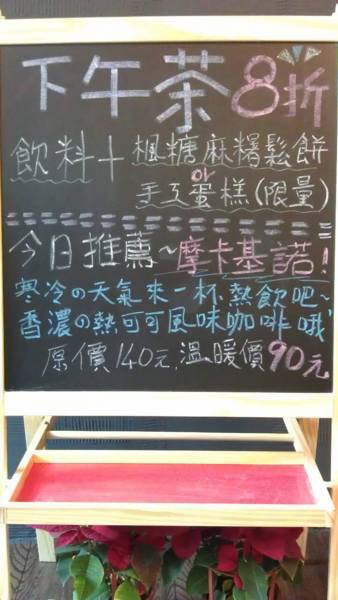 下午茶8折
飲料+楓糖麻糬鬆餅
or
手工蛋糕(限量)
今日推薦~摩卡基諾!
寒冷の天氣來一杯熱飲吧~
香濃の熱可可風味咖啡哦!
原價140元,溫暖價90元